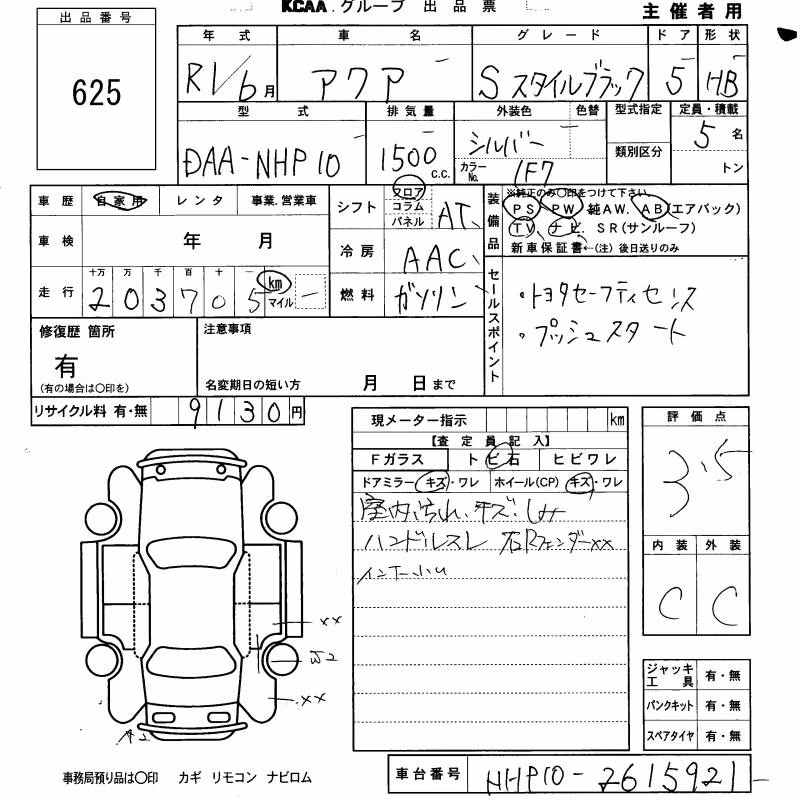 KCAA.グループ 出品票
主催者用
出品番号
625
年式 車名 グレード ドア 形状
R1/6月 アクア Sスタイルブラック 5 HB
型式 排気量 外装色 色替 型式指定 定員・積載
DAA-NHP10 1500c.c. シルバー 5名
類別区分
カラーNo. 1F7 トン
車歴 自家用 レンタ 事業.営業車
車検 年 月
走行 十万 万 千 百 十 一 km マイル
203705
シフト フロア コラム パネル AT
冷房 AAC
燃料 ガソリン
装備品
※純正のみ〇印をつけて下さい。
PS PW 純AW. AB(エアバック)
TV ナビ SR(サンルーフ)
新車保証書←(注)後日送りのみ
セールスポイント
・トヨタセーフティセンス
・プッシュスタート
修復歴 箇所
有
(有の場合は〇印を)
注意事項
名変期日の短い方 月 日まで
リサイクル料 有・無 9130円
現メーター指示 km
【査定員記入】
Fガラス トビ石 ヒビワレ
ドアミラー キズ・ワレ ホイール(CP) キズ・ワレ
室内汚れ、キズ、しみ
ハンドルスレ 右Rフェンダー××
インナー
評価点
3.5
内装 外装
C C
××
××
ジャッキ工具 有・無
パンクキット 有・無
スペアタイヤ 有・無
事務局預り品は〇印 カギ リモコン ナビロム
車台番号 NHP10-2615921